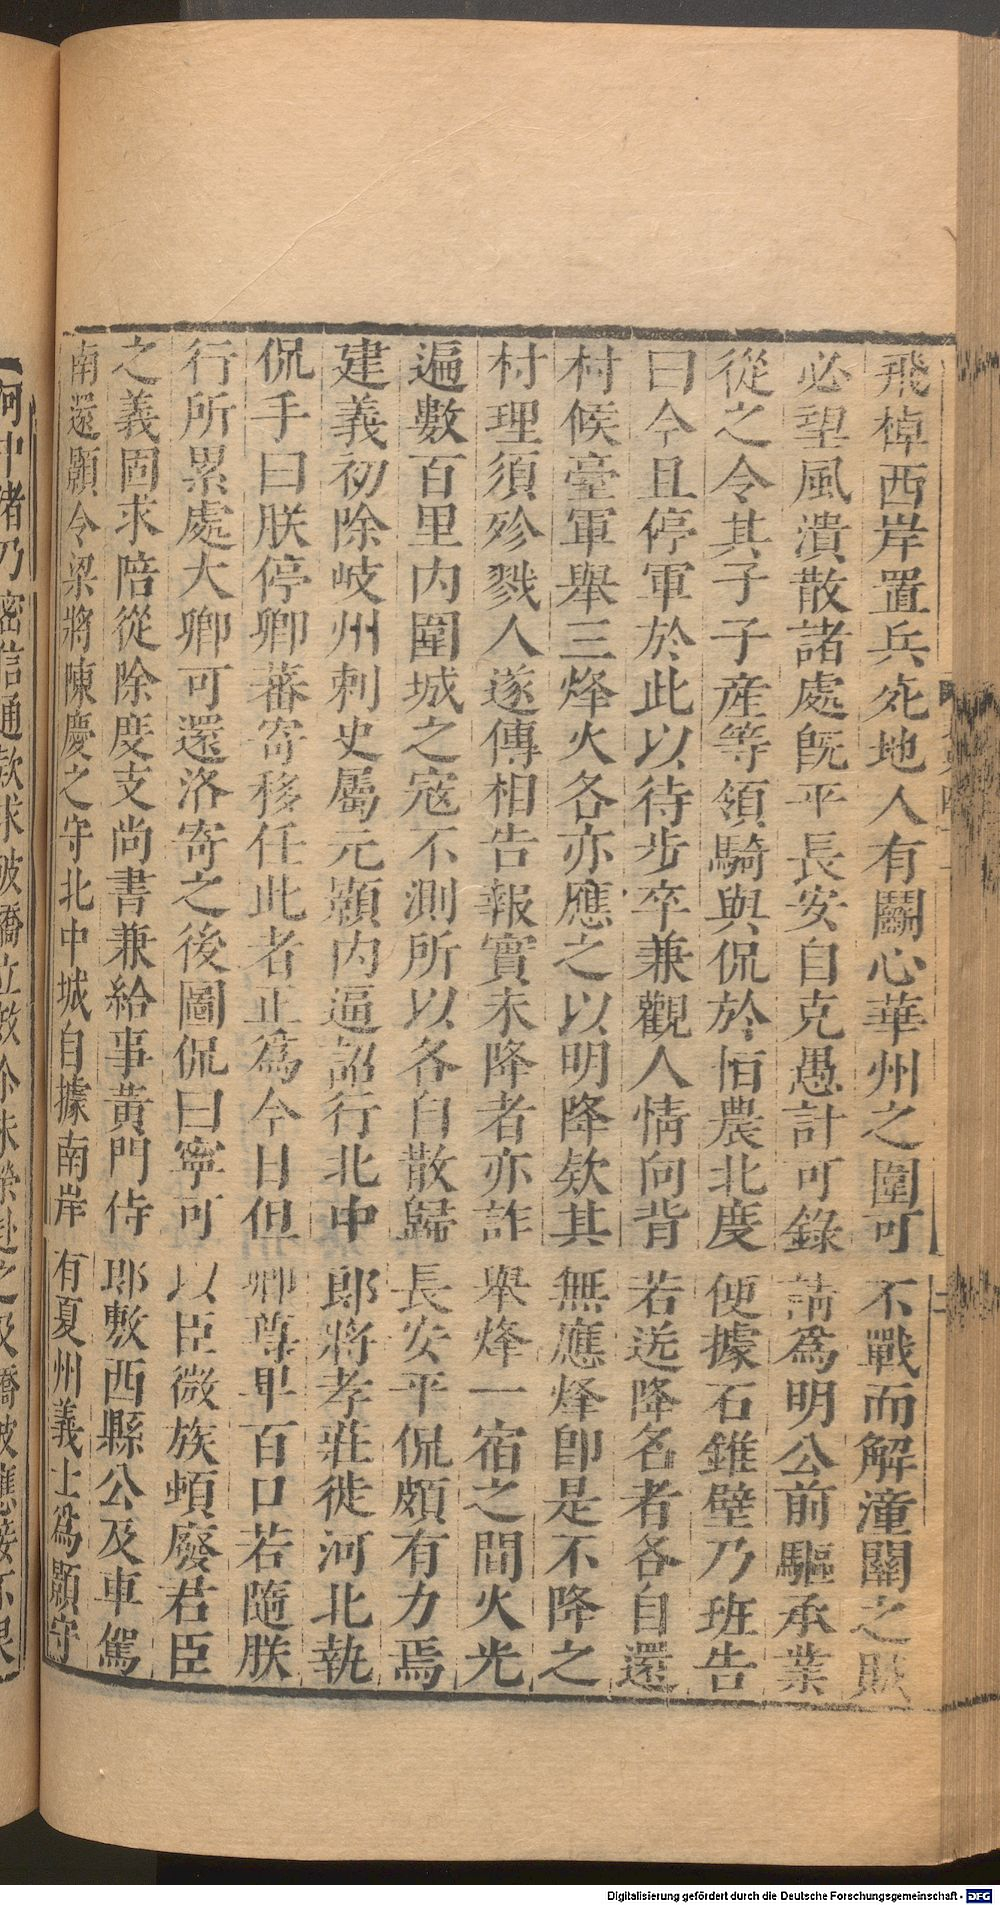 飛棹西岸置兵死地人有鬭心華州之圍可不戰而解潼關之賊
必望風潰散諸處既平長安自克愚計可錄請爲明公前驅承業
從之令其子子產等領騎與侃於恒農北度便據石錐壁乃班告
曰今且停軍於此以待步卒兼觀人情向背若送降名者各自還
村候臺軍舉三烽火各亦應之以明降欵其無應烽卽是不降之
村理須殄戮人遂傳相告報實未降者亦詐舉烽一宿之間火光
遍數百里內圍城之寇不測所以各自散歸長安平侃頗有力焉
建義初除岐州刺史屬元顥內逼詔行北中郎將孝莊徙河北執
侃手曰朕停卿蕃寄移任此者正爲今日但卿尊卑百口若隨朕
行所累處大卿可還洛寄之後圖侃曰寧可以臣微族頓廢君臣
之義固求陪從除度支尚書兼給事黃門侍郎敷西縣公及車駕
南還顥令梁將陳慶之守北中城自據南岸有夏州義士爲顥守
河中渚乃密信通欵求破橋立效尒朱榮赴之及橋破應接不果
Digitalisierung gefördert durch die Deutsche Forschungsgemeinschaft - DFG